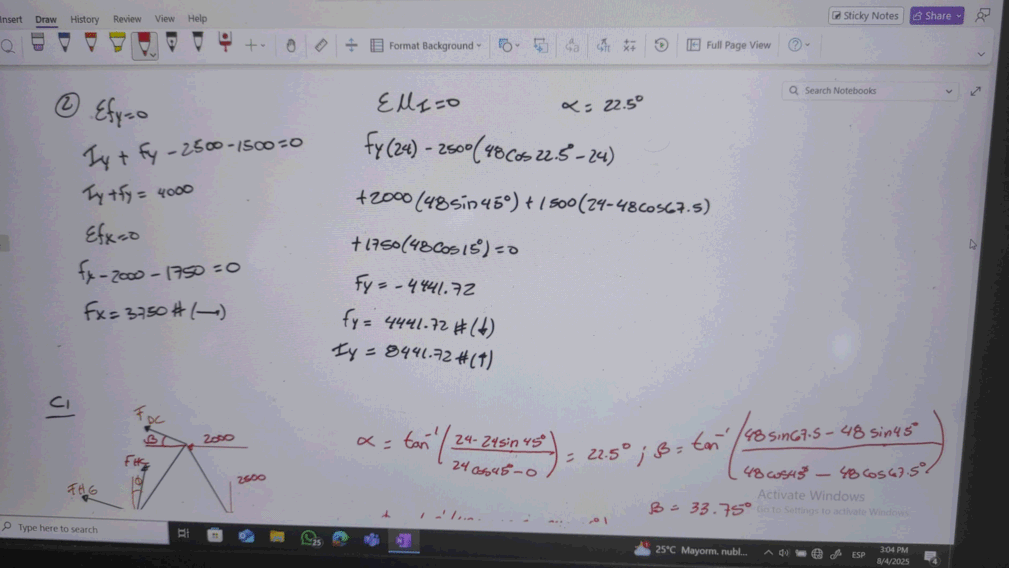 nsert Draw History Review View Help
Sticky Notes Share
Format Background Full Page View
Search Notebooks
② Σfy=0
Iy + Fy - 2500 - 1500 = 0
Iy + fy = 4000
Σfx=0
fx - 2000 - 1750 = 0
Fx = 3750 # (→)
ΣMI = 0 α = 22.5°
Fy(24) - 2500(48Cos 22.5° - 24)
+2000(48sin45°) + 1500(24-48cos67.5)
+1750(48Cos15°) = 0
Fy = -4441.72
fy = 4441.72 # (↓)
Iy = 8441.72 # (↑)
C1
FDC
β 2000
FHC
2500
FHG
α = tan⁻¹(24-24sin45°/24cos45°-0) = 22.5° ; β = tan⁻¹(48sin67.5 - 48sin45°/48cos45° - 48cos67.5°)
β = 33.75°
Activate Windows
Go to Settings to activate Windows.
Type here to search
25
25°C Mayorm. nubl...
ESP
3:04 PM
8/4/2025
4